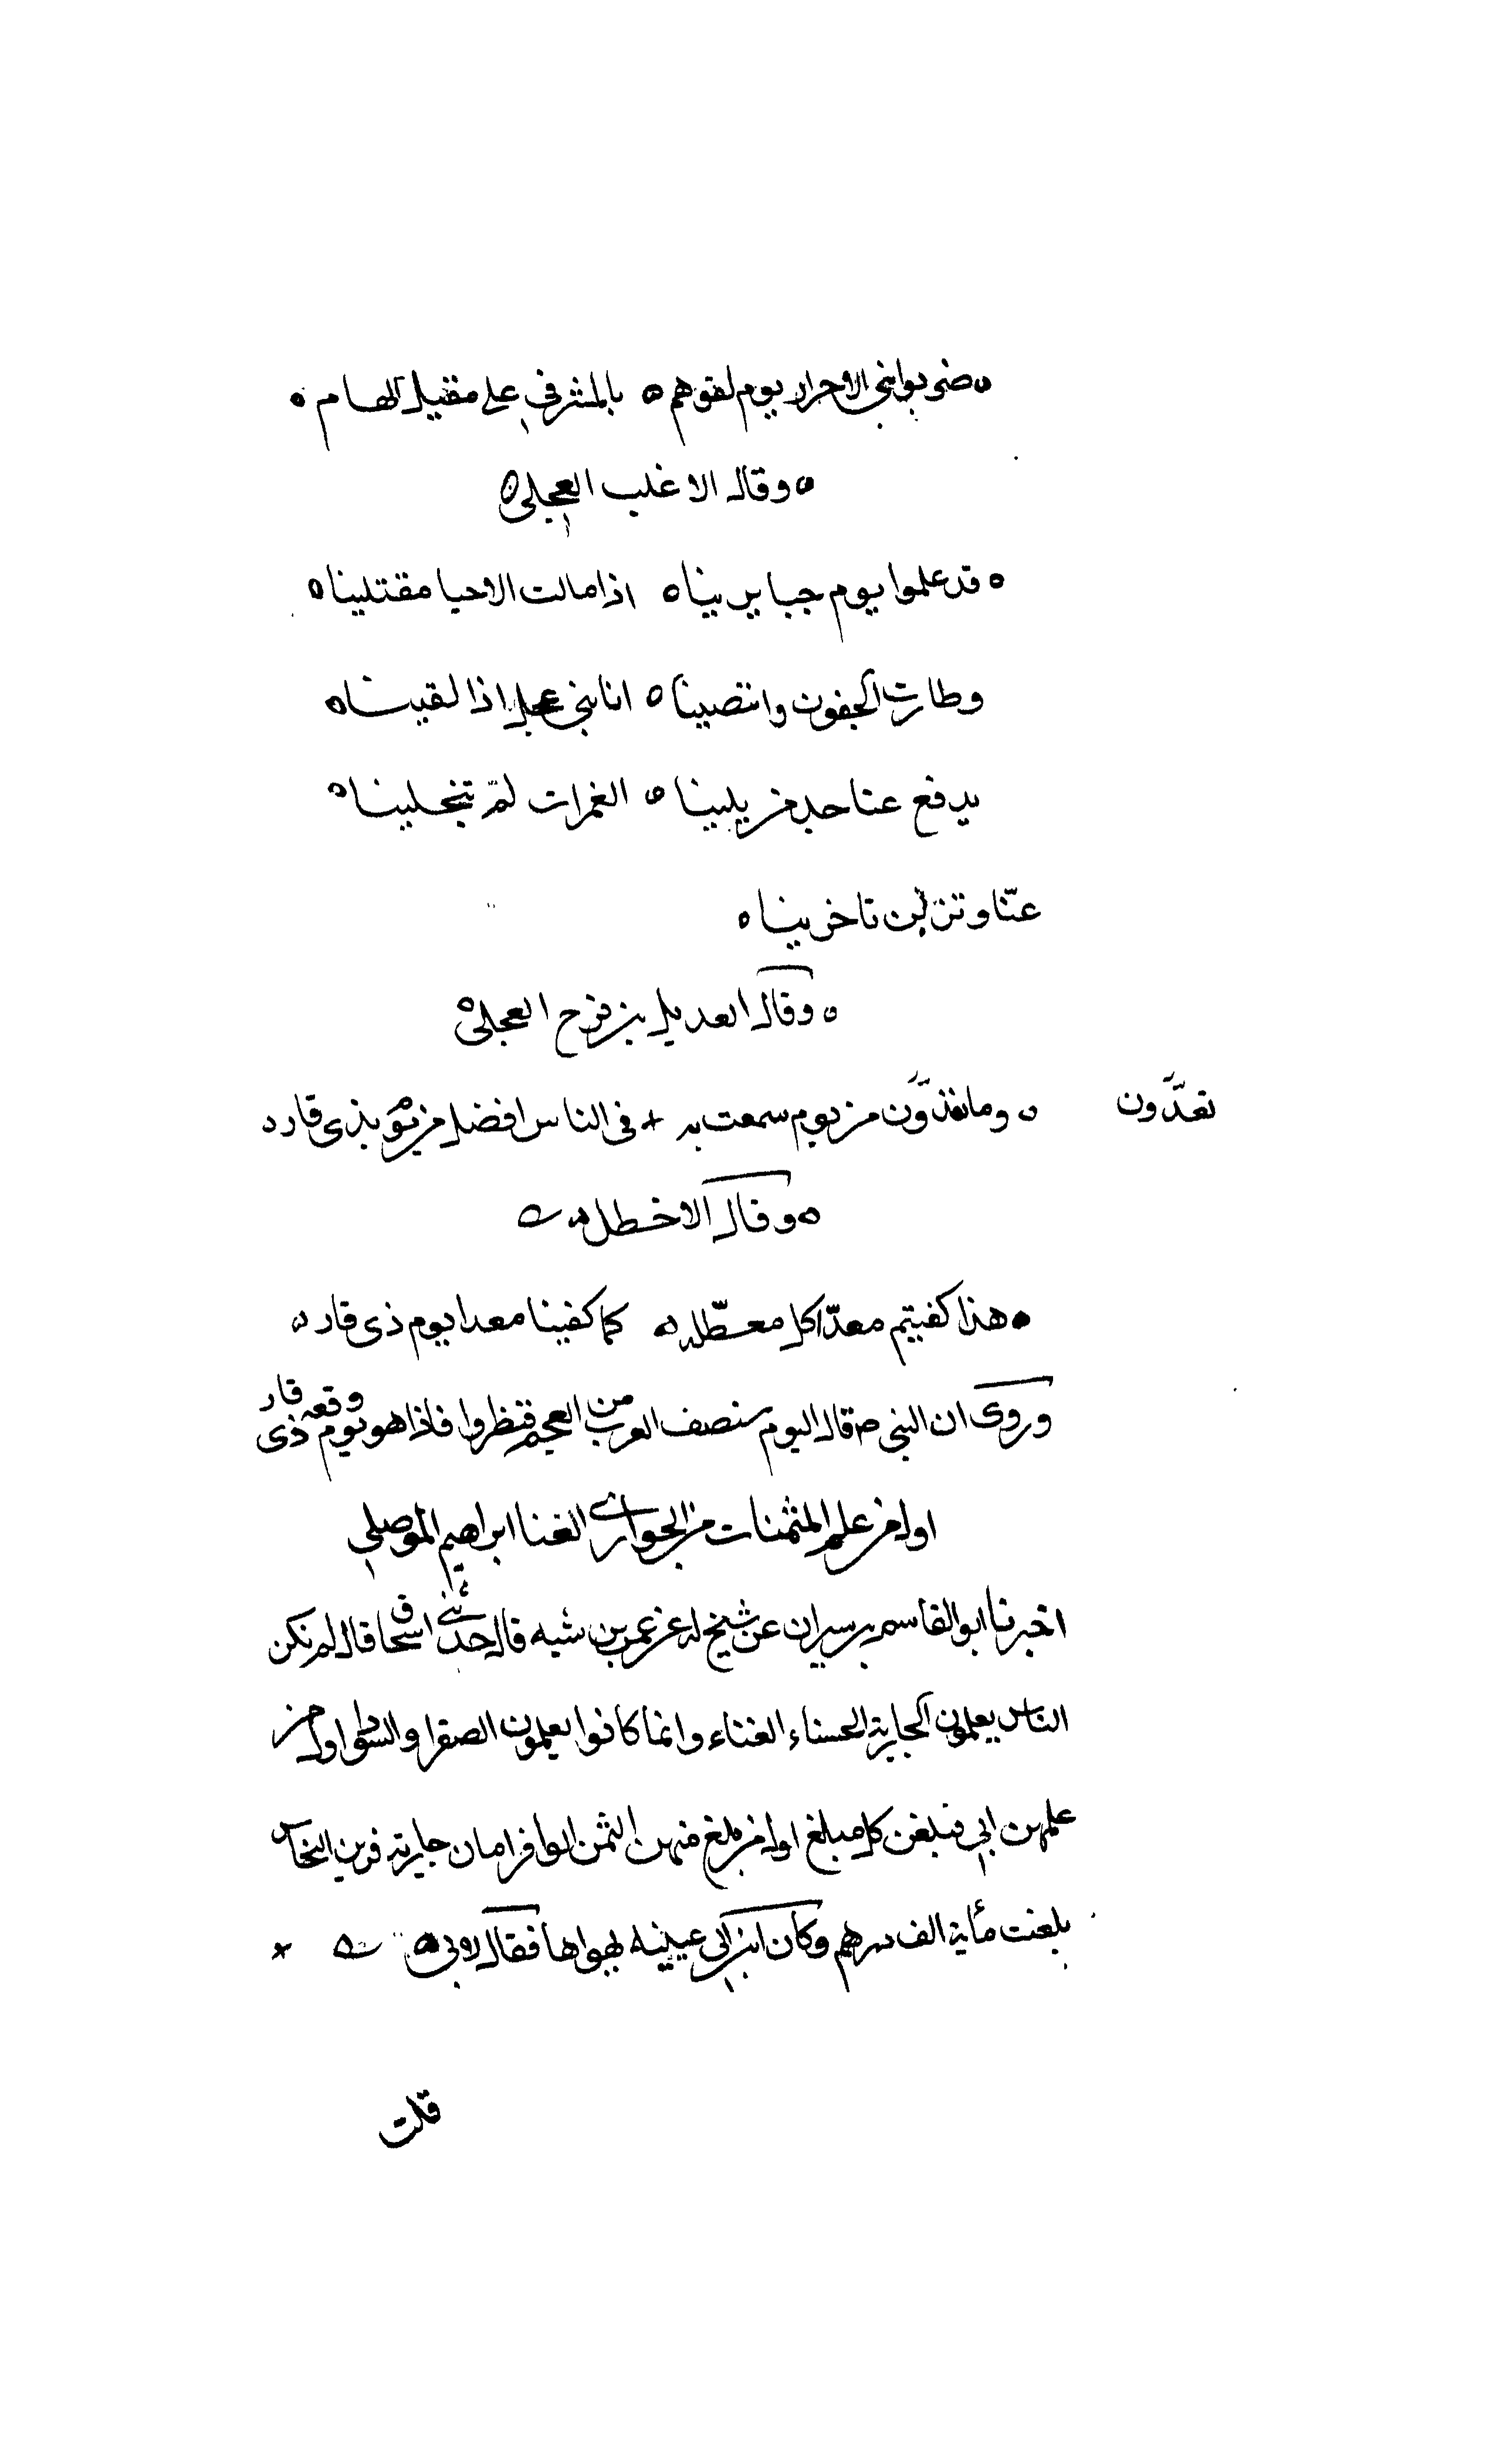 ضربوا بني الاحرار يوم لقوهم ه بالمشرفي علي مقيل الهام ه
ه وقال الاغلب العجلي ه
ه قد علموا يوم جبايرينا ه اذا مالت الاحيا مقتلينا ه
وطارت الجفون وانتصينا ه انا بني عجل اذا لقينا ه
يدفع عنا حد من يلينا ه الغمرات ثم تنجلينا ه
عنّا وتنزلن تاخرينا ه
ه وقال العديل بن فرح العجلي ه
ه وما تعدّون من يوم سمعت به * في الناس افضل من يوم بذي قار ه
تعدّون
ه وقال الاخطل ه
ه هذا كفيتم معدّا كل معطّله ه كما كفينا معدا يوم ذي قار ه
وروى ان النبي ص قال اليوم ينصف العرب من العجم فنظروا فاذا هو يوم وقعه ذي قار
اول من علم المثمنات من الجواري الغنا ابراهيم الموصلي
اخبرنا ابو القاسم بن سيران عن شيخ له عن عمر بن شبه قال حدثني اسحاق قال لم تكن
الناس يعلمون الجارية الحسناء الغناء وانما كانوا يعلمون الصفرا والسودا واول من
علمهن ابي فبلغن كل مبلغ اول من بلغ منهن الثمن الوافر امان جارية قرين النخاس
بلغت مأية الف درهم وكان ابن ابي عيينه يهواها فقال لابي ه *
قلت